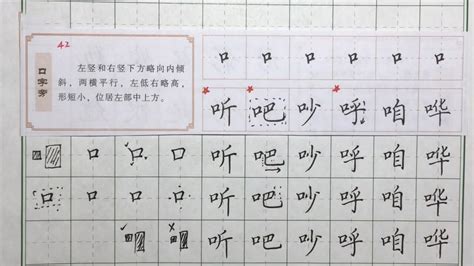 42
口字旁
左竖和右竖下方略向内倾
斜，两横平行，左低右略高，
形短小，位居左部中上方。
口 口 口 口 口 口
听 吧 吵 呼 咱 哗
口 口 口 听 吧 吵 呼 咱 哗
口 口 口 口 听 吧 吵 呼 咱 哗
听 吧 吵 呼 咱 哗